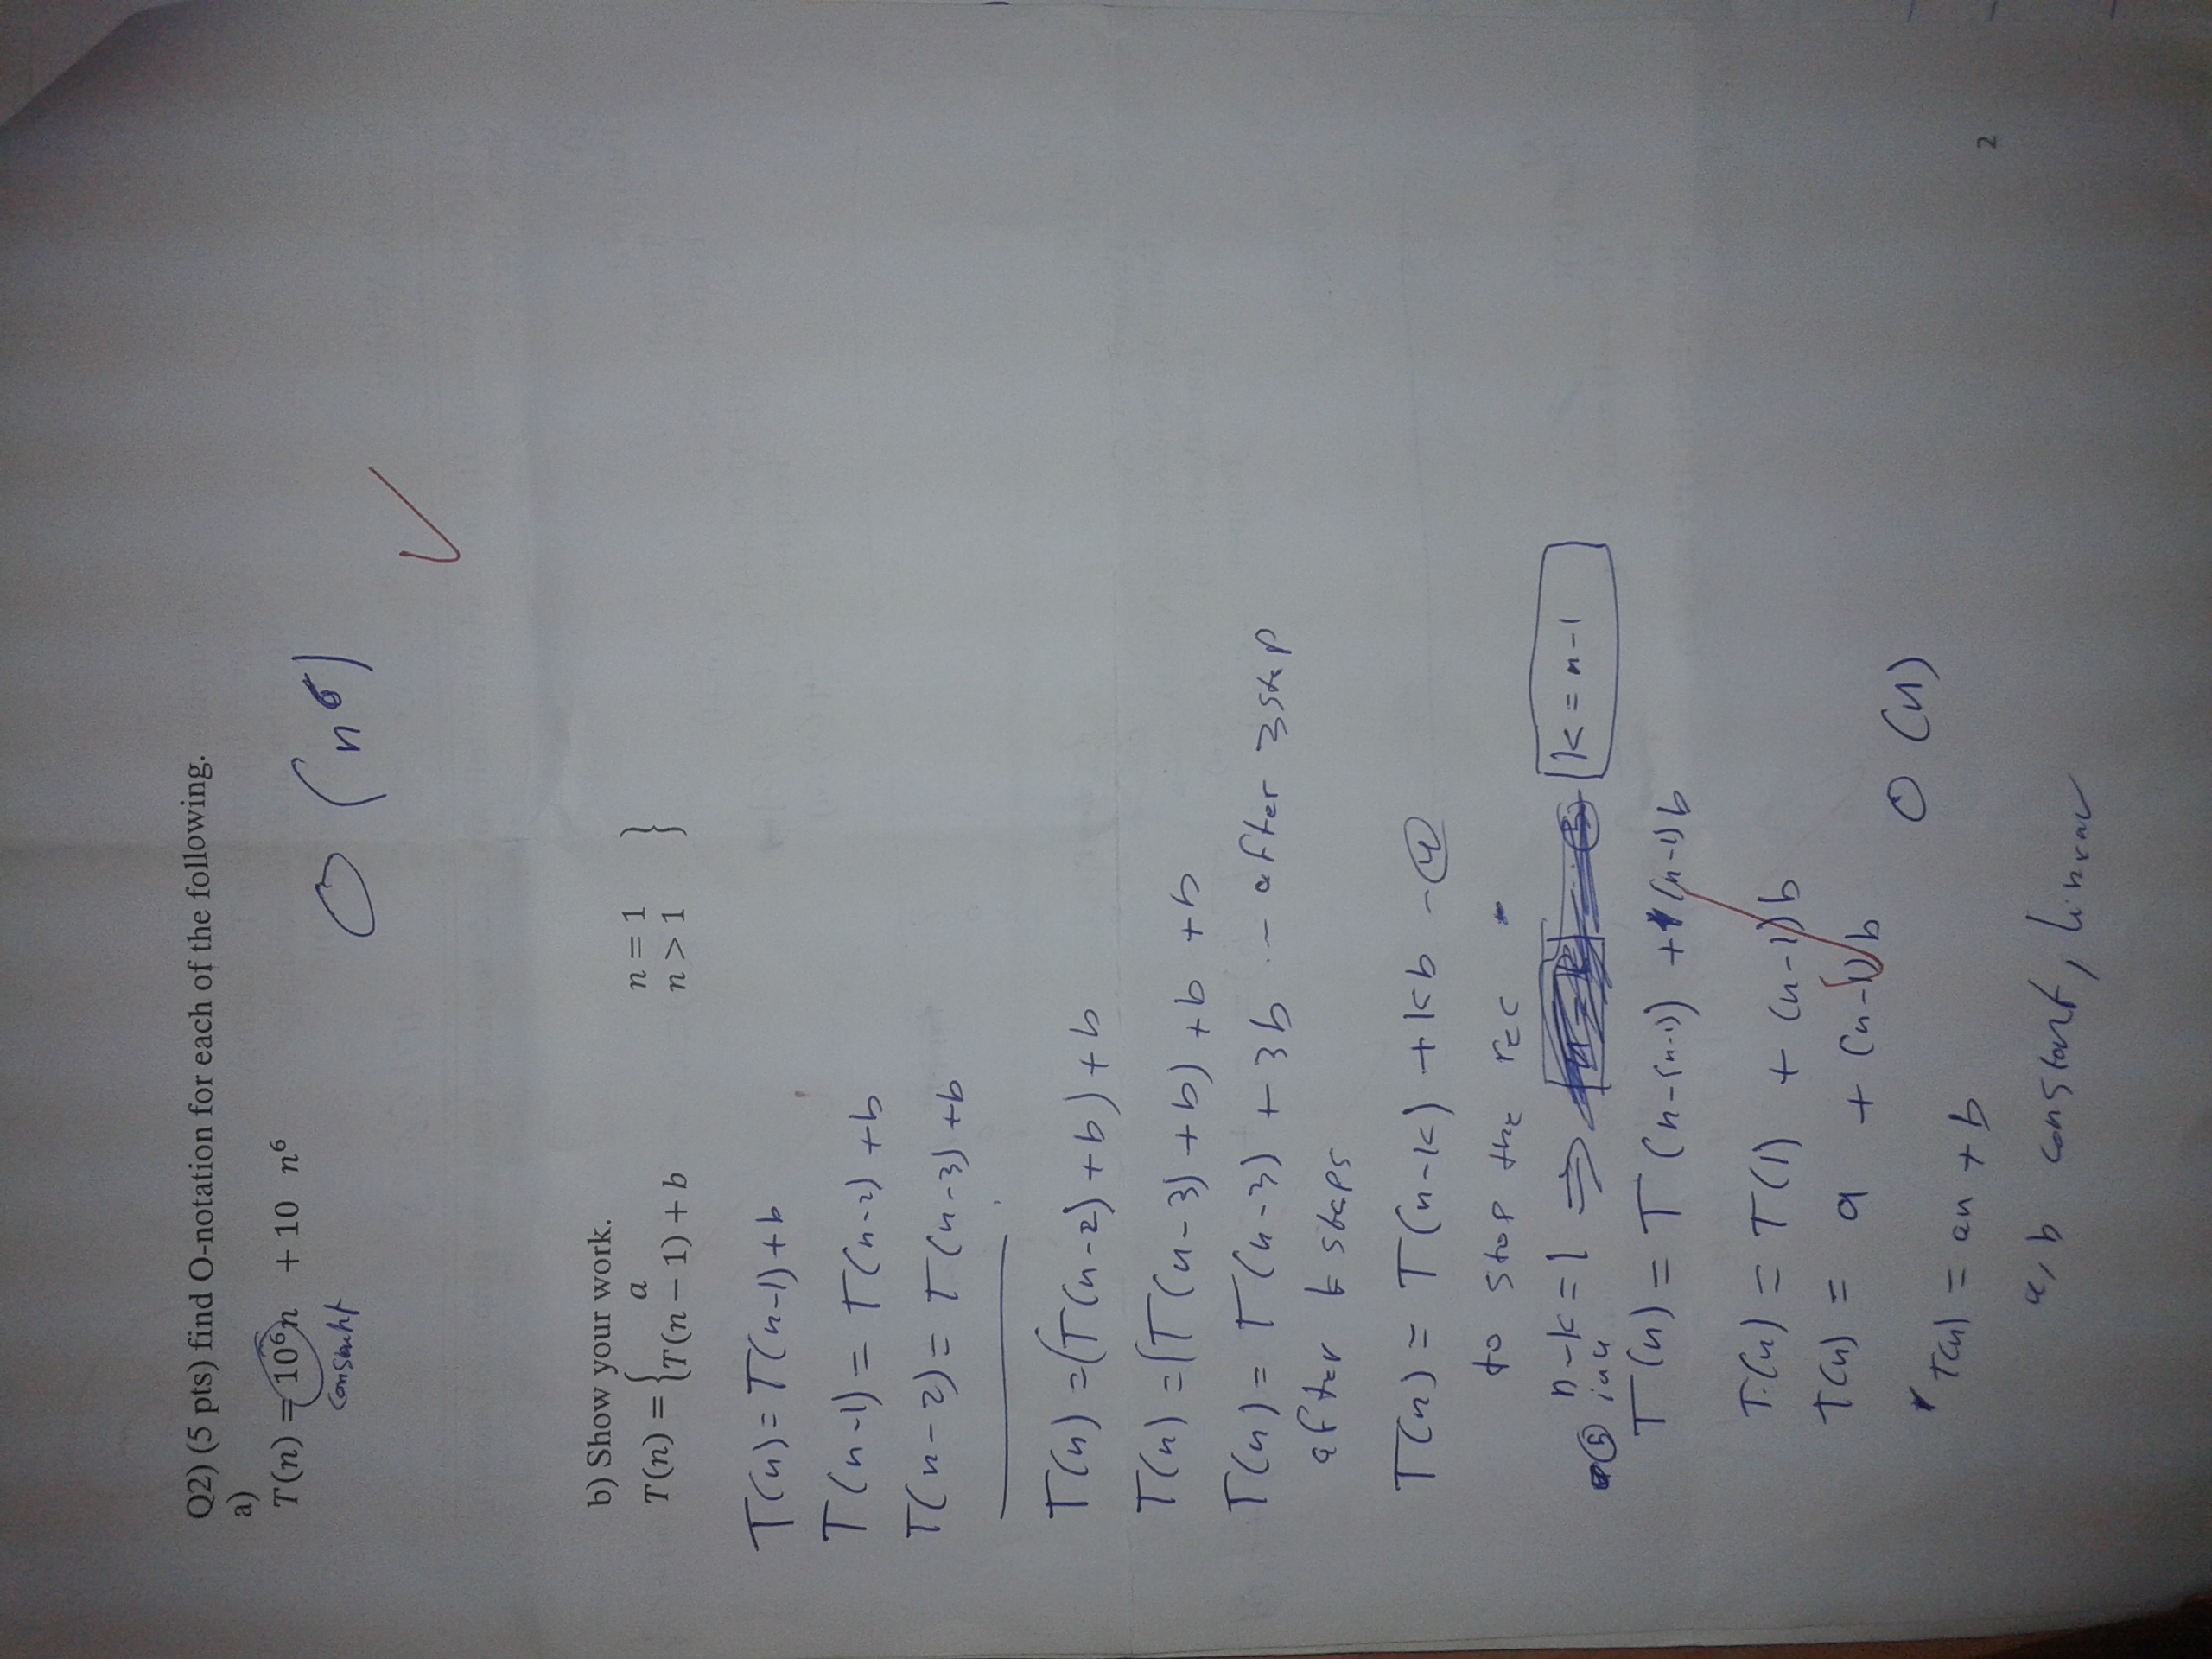 Q2) (5 pts) find O-notation for each of the following.
a)
T(n) = 10⁶n + 10 n⁶
O (n⁶)
b) Show your work.
T(n) = { a n = 1
T(n − 1) + b n > 1 }
T(n) = T(n-1) + b
T(n-1) = T(n-2) + b
T(n-2) = T(n-3) + b
T(n) = (T(n-2) + b) + b
T(n) = (T(n-3) + b) + b + b
T(n) = T(n-3) + 3b -- after 3 step
after k steps
T(n) = T(n-k) + kb - 4
to stop the rec .
n-k = 1 ⇒ k = n-1
5 in 4
T(n) = T(n-(n-1)) + (n-1)b
T(n) = T(1) + (n-1)b
T(n) = a + (n-1)b
O(n)
T(n) = an + b
a, b constant, linear
2